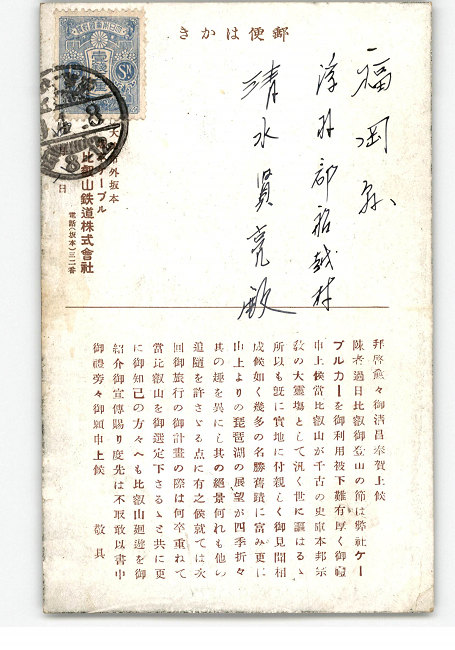 郵便はかき
福岡縣
浮羽郡船越村
清水賢亮殿
外坂本
ケーブル
比叡山鉄道株式會社
電話(坂本)三二番
拜啓愈々御清昌奉賀上候
陳者過日比叡御登山の節は弊社ケー
ブルカーを御利用被下難有厚く御禮
申上候當比叡山が千古の史庫本邦宗
敎の大靈塲として汎く世に謳はるゝ
所以も旣に實地に付親しく御見聞相
成候如く幾多の名勝舊蹟に富み更に
山上よりの琵琶湖の展望が四季折々
其の趣を異にし其の絕景何れも他の
追隨を許さゞる点に有之候就ては次
回御旅行の御計畫の際は何卒重ねて
當比叡山を御選定下さるゝと共に更
に御知己の方々へも比叡山廻遊を御
紹介御宣傳賜り度先は不取敢以書中
御禮旁々御願申上候　敬具